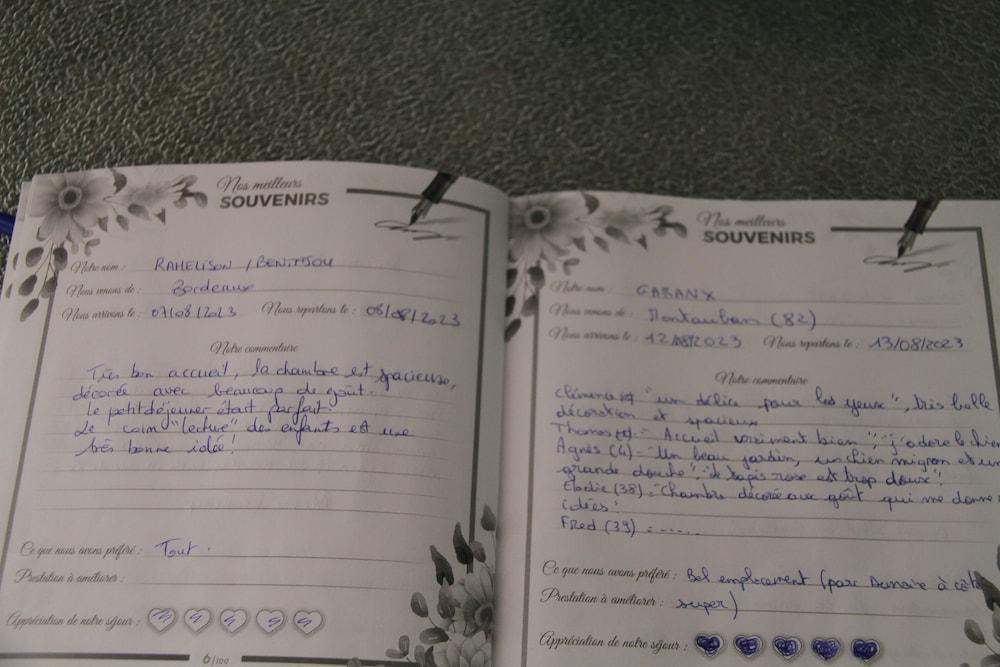 Nos meilleurs
SOUVENIRS
Notre nom : RAMELISON / BENITSOU
Nous venons de : Bordeaux
Nous arrivons le : 07/08/2023 Nous repartons le : 08/08/2023
Notre commentaire
Très bon accueil, la chambre est spacieuse,
décorée avec beaucoup de goût.
Le petit déjeuner était parfait.
Le coin "lecture" des enfants est une
très bonne idée !
Ce que nous avons préféré : Tout .
Prestation à améliorer :
Appréciation de notre séjour :
6/100
Nos meilleurs
SOUVENIRS
Notre nom : GARANX
Nous venons de : Montauban (82)
Nous arrivons le : 12/08/2023 Nous repartons le : 13/08/2023
Notre commentaire
Clémence "un délice pour les yeux", très belle
décoration et spacieux
Thomas : "Accueil vraiment bien", "j'adore le chien
Agnès (4) = "Un beau jardin, un chien mignon et un
grande douche" "le tapis rose est trop doux"!
Elodie (38) : "Chambre décorée aux goût qui me donne
idées"
Fred (39) : ......
Ce que nous avons préféré : Bel emplacement (parc à côté
Prestation à améliorer : super)
Appréciation de notre séjour :